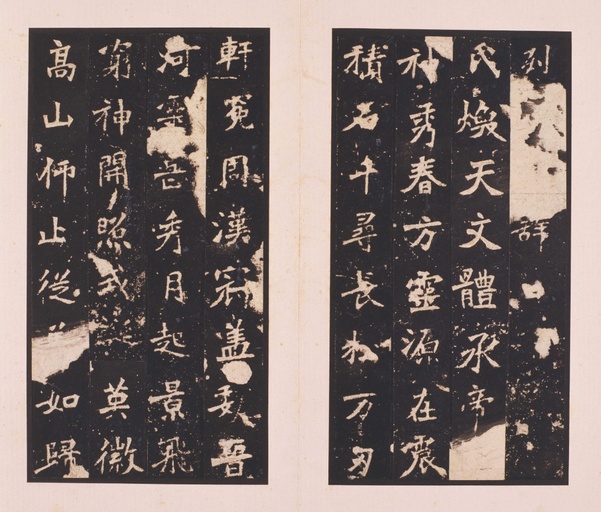 列辭曰
氏煥天文體承帝
神秀春方靈源在震
積石千尋長松万刃
軒冕周漢冠盖魏晉
河靈岳秀月起景飛
窮神開照式英徽
高山仰止從如歸